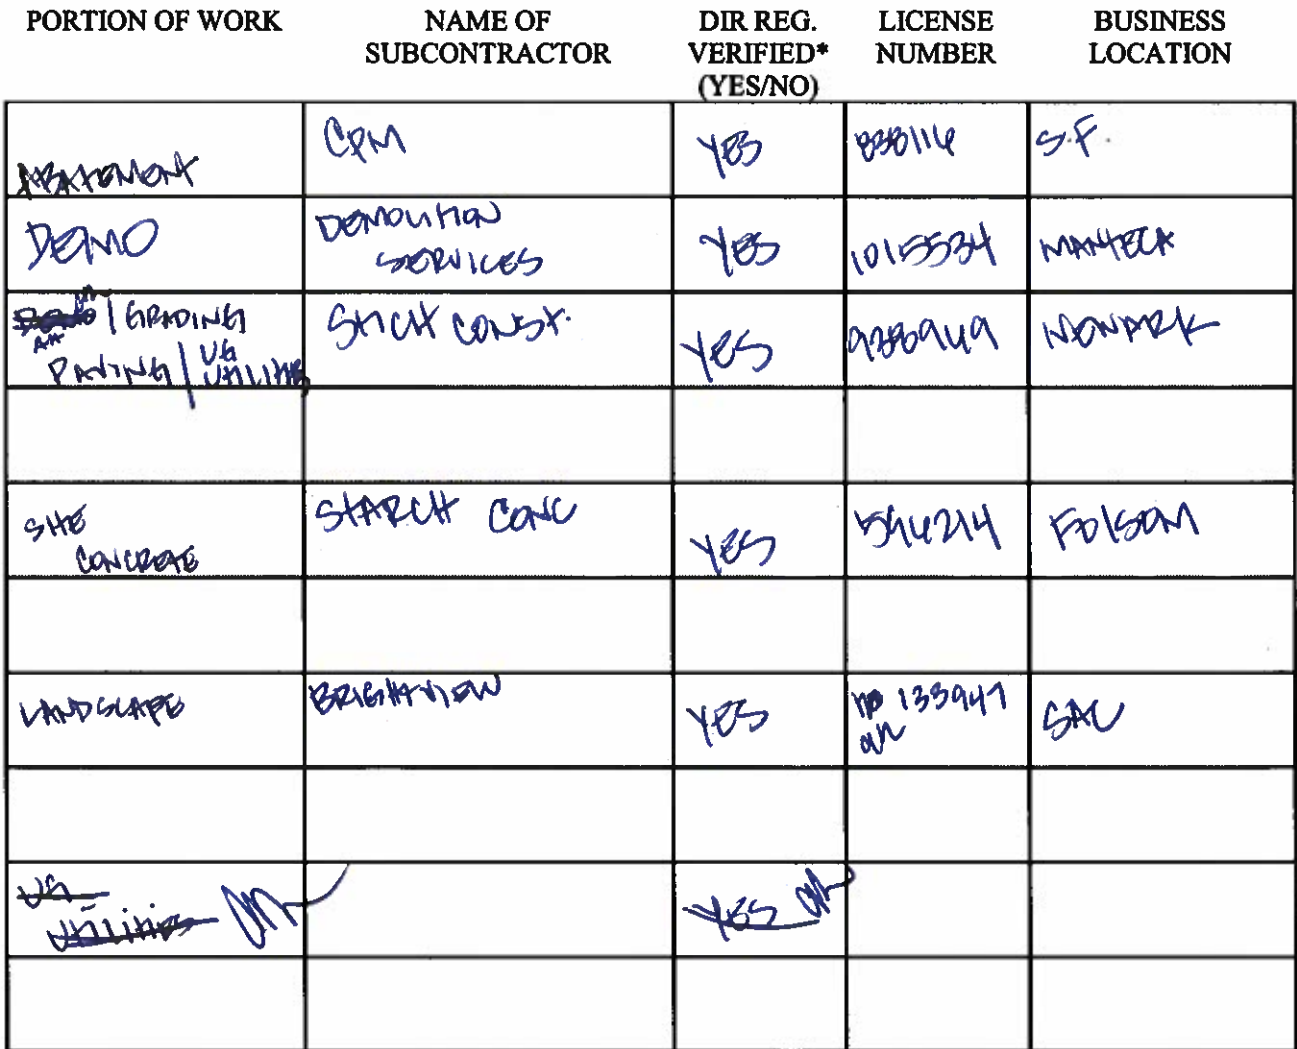 PORTION OF WORK NAME OF SUBCONTRACTOR DIR REG. VERIFIED* (YES/NO) LICENSE NUMBER BUSINESS LOCATION
ABATEMENT CPM YES 838114 S.F.
DEMO DEMOLITION SERVICES YES 1015534 MANTECA
/ GRADING PAVING / UG UTILITIES CONST. YES NEWARK
SITE CONCRETE STARCH CONC YES FOLSOM
LANDSCAPE BRIGHTVIEW YES 133947 SAC
UG Utilities YES